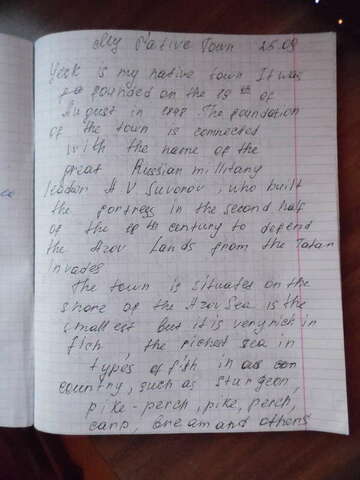 My Native Town 25.09
Yeisk is my native town It was
founded on the 19 th of
August in 1848. The foundation
of the town is connected
with the name of the
great Russian millitary
leader A V Suvorov, who built
the fortress in the second half
of the 18th century to defend
the Azov Lands from the Tatar
invades
The town is situates on the
shore of the Azov Sea is the
smallest but it is very rich in
fich, the richest sea in
types of fish in our
country, such as sturgeon,
pike-perch, pike, perch,
carp, bream and others